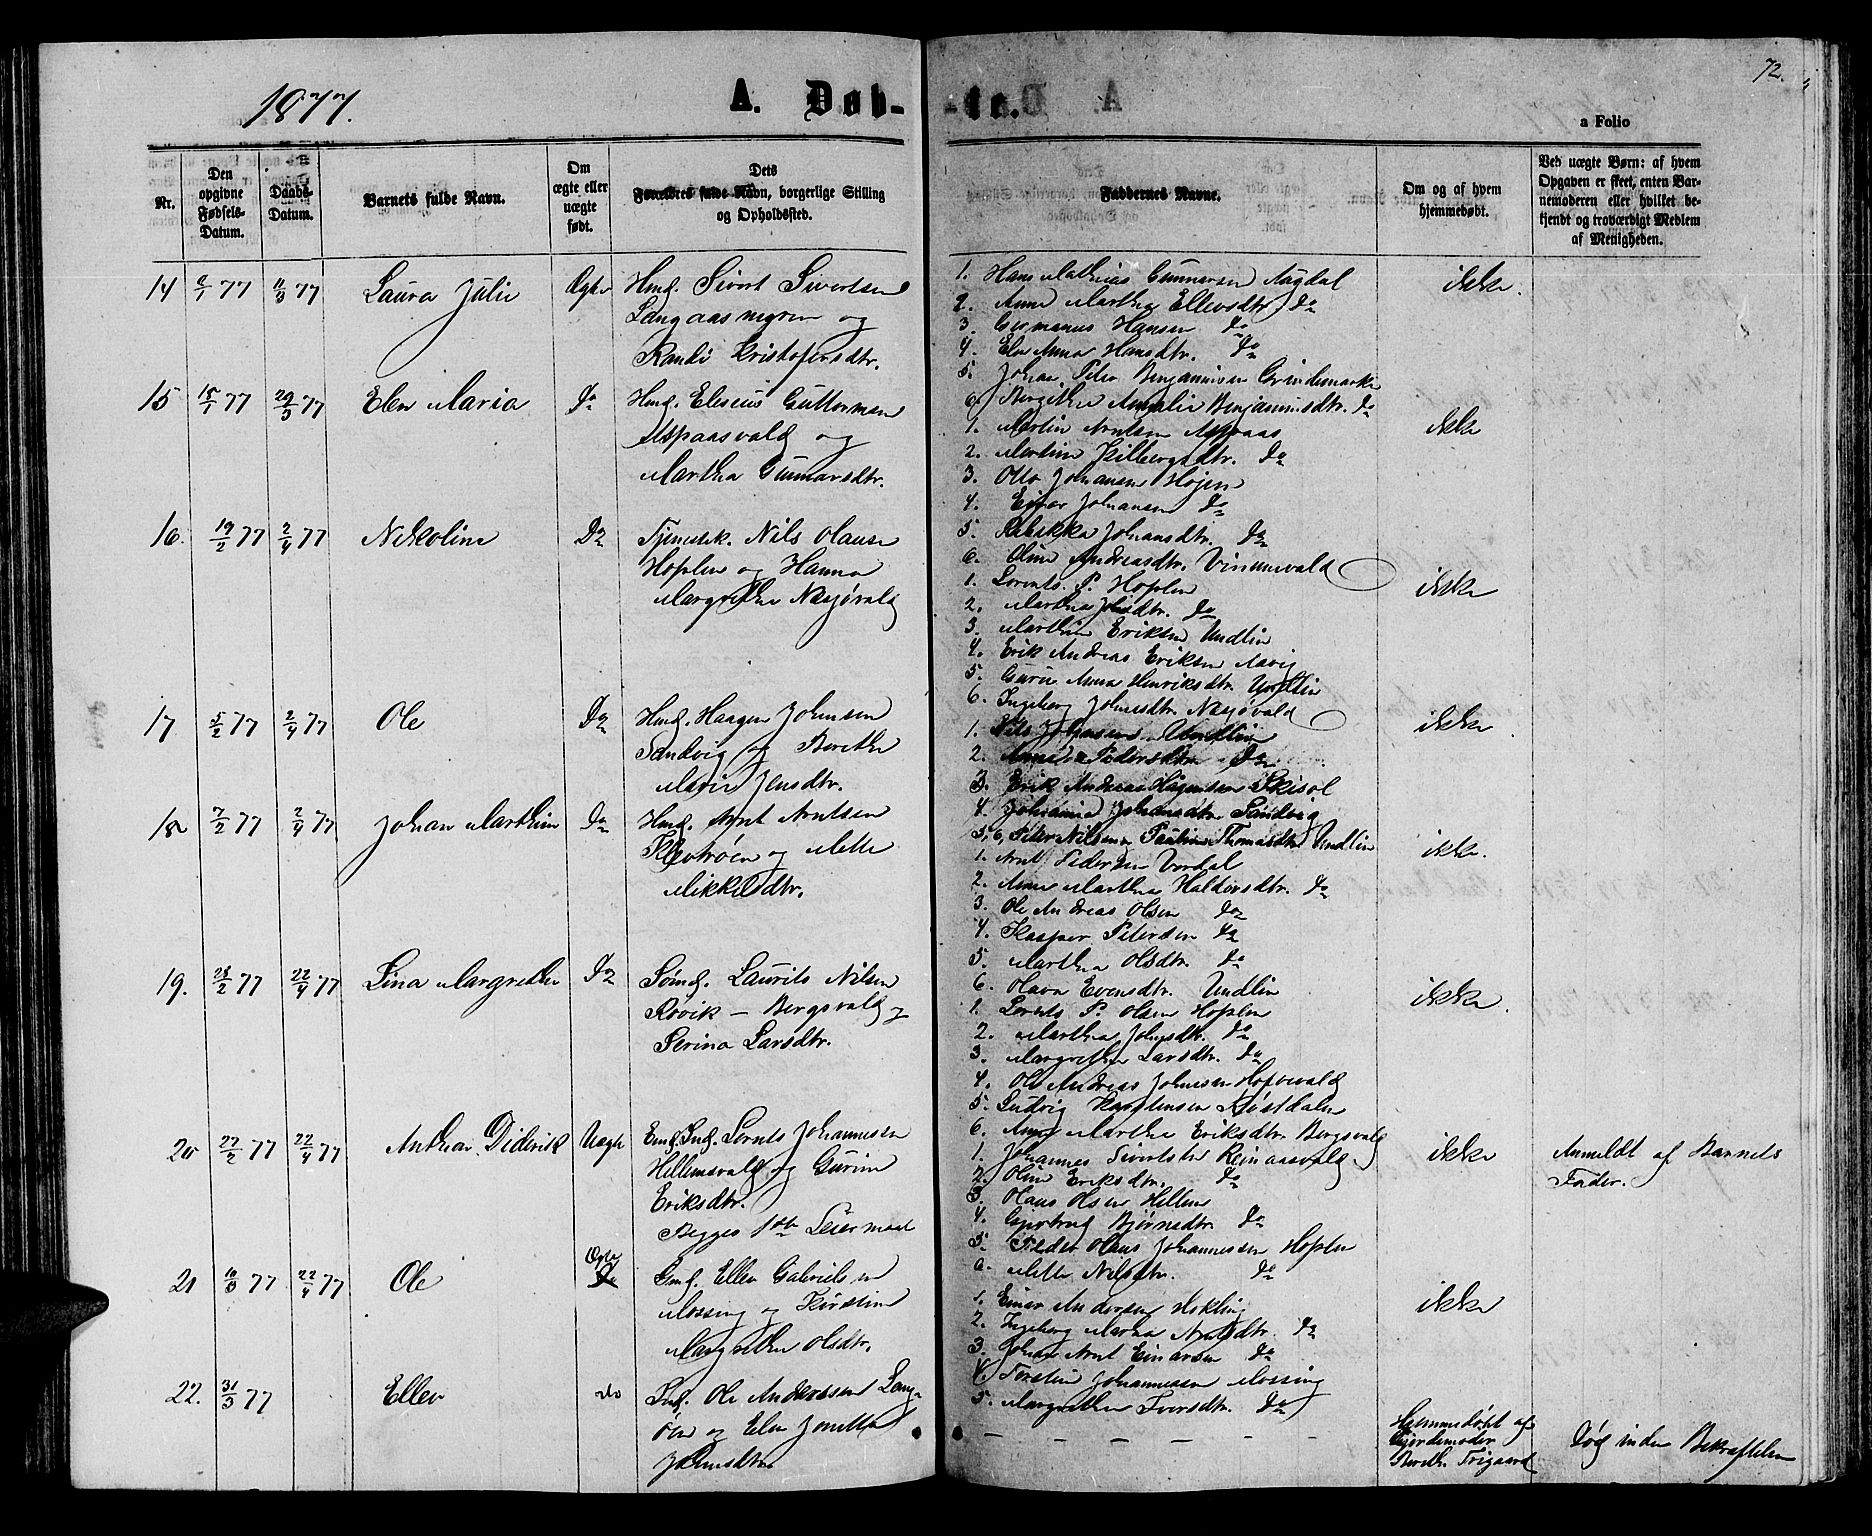 1877.
A. Døb-
te.
72.
a Folio
Nr.
Den opgivne Fødsels-Datum.
Daabs-Datum.
Barnets fulde Navn.
Om ægte eller uægte født.
Dets Forældres fulde Navn, borgerlige Stilling og Opholdssted.
Faddernes Navne.
Om og af hvem hjemmedøbt.
Ved uægte Børn: af hvem Opgaven er skeet, enten Barnemoderen eller hvilket bekjendt og troværdigt Medlem af Menigheden.
14 6/1 77 11/3 77 Laura Julie Ægte Hmd. Sivert Sivertsen
Langaasmyren og
Randi Kristofersdtr.
1. Hans Mathias Gunnarsen Aagdal
2. Anne Martha Ellevsdtr. Do
3. Germanus Hansen Do
4. Elen Anna Hansdtr. Do
5. Johan Peter Benjaminsen Grindemarken
6. Bergitha Amalia Benjaminsdtr. Do
ikke.
15 18/1 77 29/3 77 Elen Maria Do Hmd. Eleseus Guttormsen
Aspaasvald og
Martha Gunnarsdtr.
1. Martin Arntsen Aspaas
2. Martine Kilbergsdtr. Do
3. Otto Johansen Højem
4. Einar Johansen Do
5. Rebekka Johansdtr. Do
6. Oline Andreasdtr. Vinnesvald
ikke
16. 19/2 77 2/4 77 Nikoline Do Tjenestk. Nils Olausen
Hoplen og Hanna
Margrethe Næsjøvald
1. Lorents P. Hoplen
2. Martha Johsdtr. Do
3. Marthin Eriksen Undlin
4. Erik Andreas Eriksen Aavig
5. Guru Anna Henriksdtr. Undlin
6. Ingeborg Johnsdtr. Næsjøvald
ikke
17 5/2 77 2/4 77 Ole Do Hmd. Haagen Johnsen
Sandvig og Berethe
Marie Jensdtr.
1. Nils Johnsen Undlin
2. Anna Pedersdtr. Do
3. Erik Andreas Hågensen Skisol
4. Johanna Johansdtr. Sandvig
5, 6, Peter Nilsen og Pauline Thomasdtr. Undlin
ikke
18 7/2 77 2/4 77 Johan Marthin Do Hmd. Arnt Arntsen
Klevtrøen og Mette
Mikkelsdtr.
1. Arnt Pedersen Vordal
2. Anne Martha Haldorsdtr. Do
3. Ole Andreas Olsen Do
4. Kasper Petersen Do
5. Martha Olsdtr. Do
6. Olava Evensdtr. Undlin
ikke.
19. 28/2 77 22/4 77 Lina Margrethe Do Sømd. Laurits Nilsen
Røvik – Bergsvald og
Serina Larsdtr.
1. Lornts P. Olsen Hoplen
2. Martha Johnsdtr. Do
3. Margrethe Larsdtr. Do
4. Ole Andreas Johnsen Hopvald
5. Ludvig
6. Anne Martha Eriksdtr. Bergsvald
ikke
20 27/2 77 22/4 77 Anthon Diderik Uægte Emd. Lornts Johannesen
Hellemsvald og Gurine
Eriksdtr.
Begges 1ste Leiermaal
1. Johannes Sivertsen Reinaasvald
2. Oline Eriksdtr. Do
3. Olaus Olsen Hellem
4. Gjertrud Bjørnsdtr. Do
5. Peder Olaus Johannessen Hoplen
6. Mette Nilsdtr. Do
ikke Anmeldt af Barnets
Fader.
21 10/3 77 22/4 77 Ole Ægte Gmd. Ellev Gabrielsen
Mossing og Kirstine
Margrethe Olsdtr.
1. Einar Andersen Hokling
2. Ingeborg Marta Arntsdtr. Do
3. Johan Arnt Einarsen Do
4. Torstein Johannessen Mossing
5. Margrethe Iversdtr. Do
ikke
22. 31/3 77 Ellev do Ind. Ole Anderssen Lang-
øen og Elen Jonetta
Johnsdtr.
Hjemmedøbt af
Gjordemoder
Berethe Trigaard
Død inden Bekræftelsen